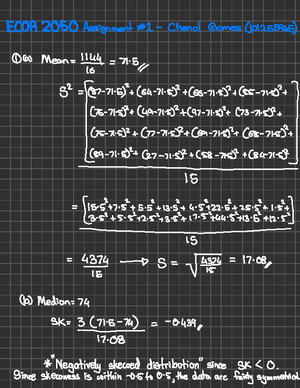 ECOR 2050 Assignment #1 -
① (a) Mean = 1144/16 = 71.5
S² = [(87-71.5)² + (64-71.5)² + (66-71.5)² + (85-71.5)² +
(76-71.5)² + (49-71.5)² + (97-71.5)² + (73-71.5)² +
(75-71.5)² + (77-71.5)² + (69-71.5)² + (68-71.5)² +
(89-71.5)² + (27-71.5)² + (58-71.5)² + (84-71.5)²]
15
= [15.5² + 7.5² + 5.5² + 13.5² + 4.5² + 22.5² + 25.5² + 1.5² +
3.5² + 5.5² + 2.5² + 3.5² + 17.5² + 44.5² + 13.5² + 12.5²]
15
= 4374/15 → S = √4374/15 = 17.08
(b) Median = 74
SK = 3 (71.5 - 74) / 17.08 = -0.439
* "Negatively skewed distribution" since SK < 0.
Since skewness is within -0.5 to 0.5, the data are fairly symmetrical